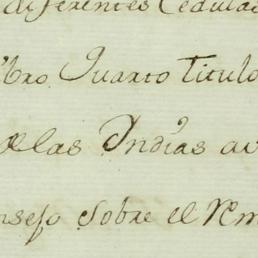 diferentes Cedulas
bro Quarto Titulo
de las Indias
nsejo Sobre el